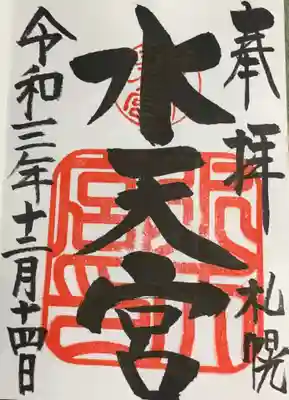 奉拝
札幌
水天宮
令和三年十二月十四日